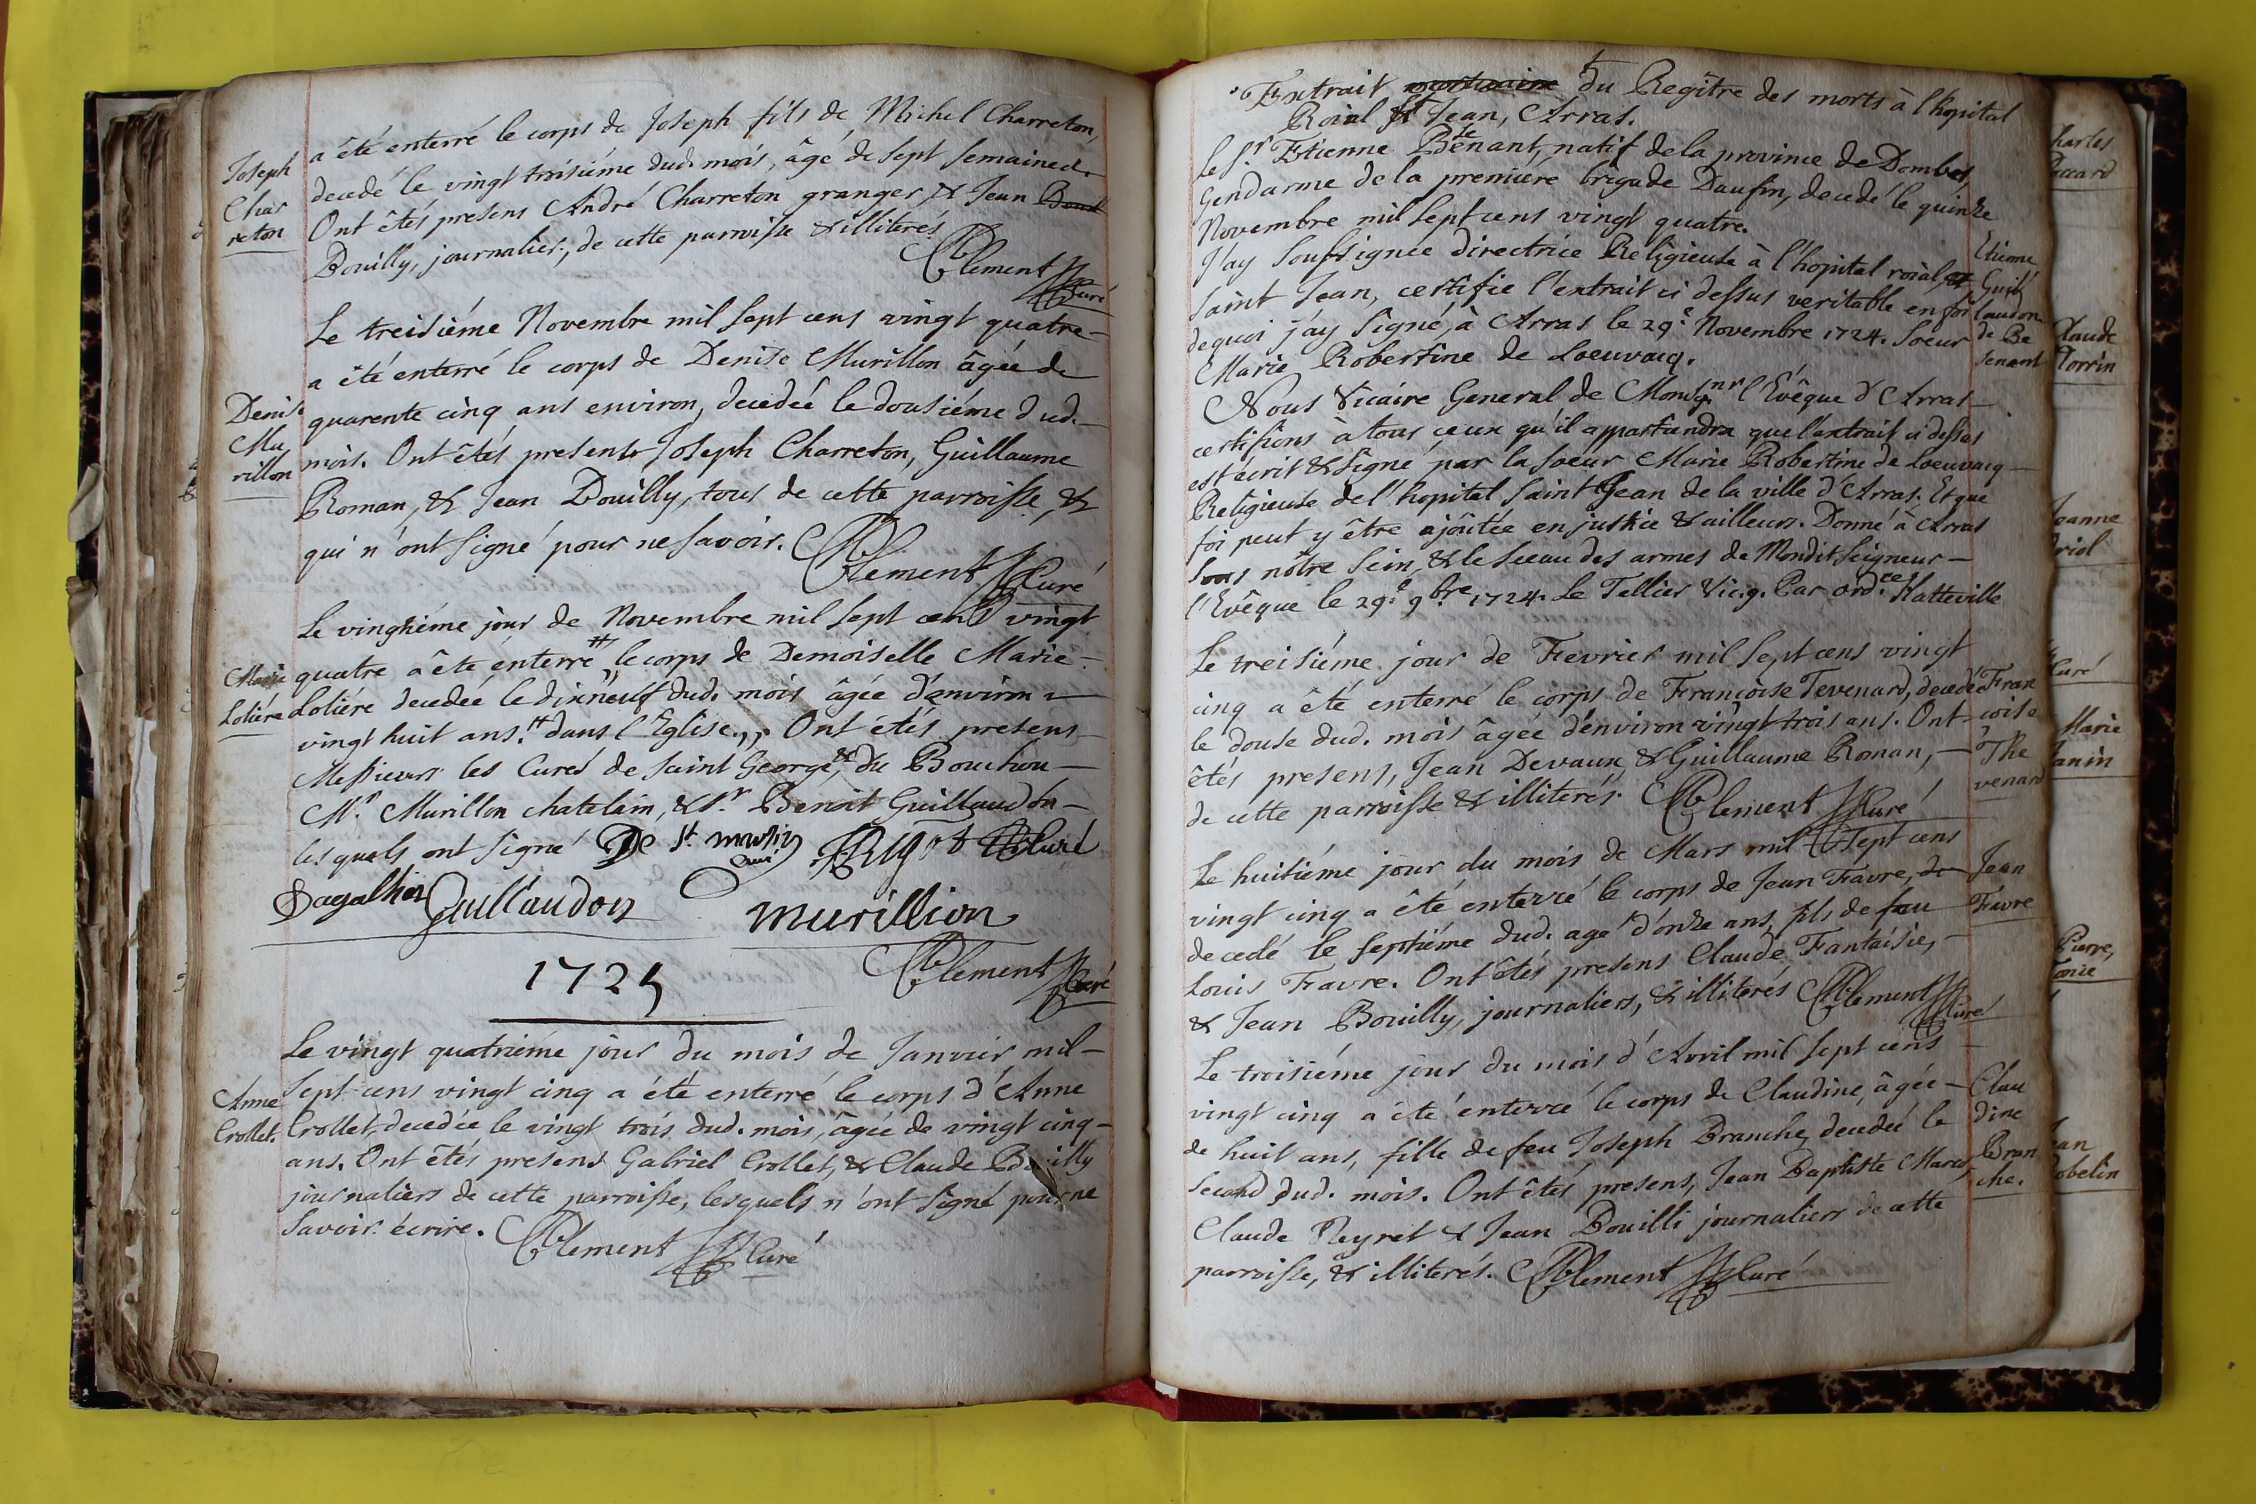 Joseph
Char
reton
a été enterré le corps de Joseph fils de Michel Charreton,
decedé le vingt troisiéme dud. mois, âgé de sept semaines.
Ont êtés presens André Charreton granger, & Jean
Bouilly, journalier, de cette parroisse & illiterés
Clement Curé
Le treisiéme Novembre mil sept cens vingt quatre
a été enterré le corps de Denise Murillon âgée de
Denise
Mu
rillon
quarente cinq ans environ, decedée le dousiéme dud.
mois. Ont êtés presents Joseph Charreton, Guillaume
Roman, & Jean Bouilly, tous de cette parroisse, &
qui n'ont signé pour ne savoir.
Clement Curé
Le vingtiéme jour de Novembre mil sept cens vingt
quatre a été enterré # le corps de Demoiselle Marie
Marie
Loliére
Loliére decedée le dixneuf dud. mois âgée d'environ
vingt huit ans. # dans l'Eglise. Ont étés presens
Messieurs les Curés de saint George, & du Bouchou
Mr. Murillon chatelain, & Sr. Benoit Guillaudon
lesquels ont signé De St. Curé
Guillaudon
murillion
Clement Curé
1725
Le vingt quatriéme jour du mois de Janvier mil
sept cens vingt cinq a été enterré le corps d'Anne
Anne
Crollet.
Crollet, decedée le vingt trois dud. mois, âgée de vingt cinq
ans. Ont êtés presens Gabriel Crollet, & Claude Bouilly
journaliers de cette parroisse, lesquels n'ont signé pour ne
savoir écrire. Clement Curé
Extrait mortuaire du Regître des morts à l'hopital
Roial St Jean, Arras.
Le Sr. Etienne Bénant, natif de la province de Dombes,
Gendarme de la premiére brigade Daufin, decedé le quinze
Novembre mil sept cens vingt quatre.
J'ay soussignée directrice Religieuse à l'hopital roial
Saint Jean, certifie l'extrait ci dessus veritable en foi
dequoi j'ay signé, à Arras le 29e. Novembre 1724. Soeur
Marie Robertine de Loeuvacq.
Etienne
Guil
laudon
de Be
senant
Nous Vicaire General de Monsgnr l'Evêque d'Arras
certifions à tous ceux qu'il appartiendra que l'extrait ci dessus
est écrit & signé par la soeur Marie Robertine de Loeuvacq
Religieuse de l'hopital Saint Jean de la ville d'Arras. Et que
foi peut y être ajôutée en justice & ailleurs. Donné à Arras
sous nôtre sein, & le sceau des armes de Mondit Seigneur
l'Evêque le 29e. 9bre. 1724. Le Tellier Vic. g. Par ordce. Hatteville
Le treisiéme jour de Fevrier mil sept cens vingt
cinq a été enterré le corps de Françoise Tevenard, decedée
le douse dud. mois âgée d'environ vingt trois ans. Ont
êtés presens, Jean Devaux & Guillaume Roman,
de cette parroisse & illiterés. Clement Curé
Fran
coise
The
venard
Le huitiéme jour du mois de Mars mil sept cens
vingt cinq a été enterré le corps de Jean Favre, de
decedé le septiéme dud. agé d'onze ans, fils de feu
Louis Favre. Ont êtés presens Claude Fantaisie,
& Jean Bouilly, journaliers, & illiterés Clement Curé
Jean
Favre
Le troisiéme jour du mois d'Avril mil sept cens
vingt cinq a été enterré le corps de Claudine, âgée
de huit ans, fille de feu Joseph Branche, decedée le
second dud. mois. Ont êtés presens, Jean Baptiste Maret,
Claude Neyret & Jean Bouilli journaliers de cette
parroisse, & illiterés. Clement Curé
Clau
dine
Bran
che.
harles
laude
eanne
riol
uré
Marie
anin
Pierre,
ean
obelin